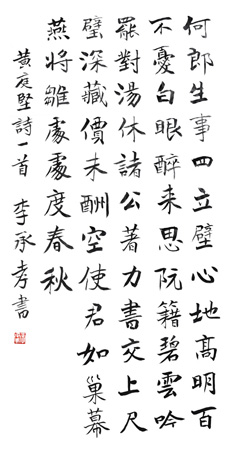 何郎生事四立壁心地高明百
不憂白眼醉来思阮籍碧雲吟
罷對湯休諸公著力書交上尺
璧深藏價未酬空使君如巢幕
燕將雛處處度春秋
黄庭堅詩一首 李承孝書